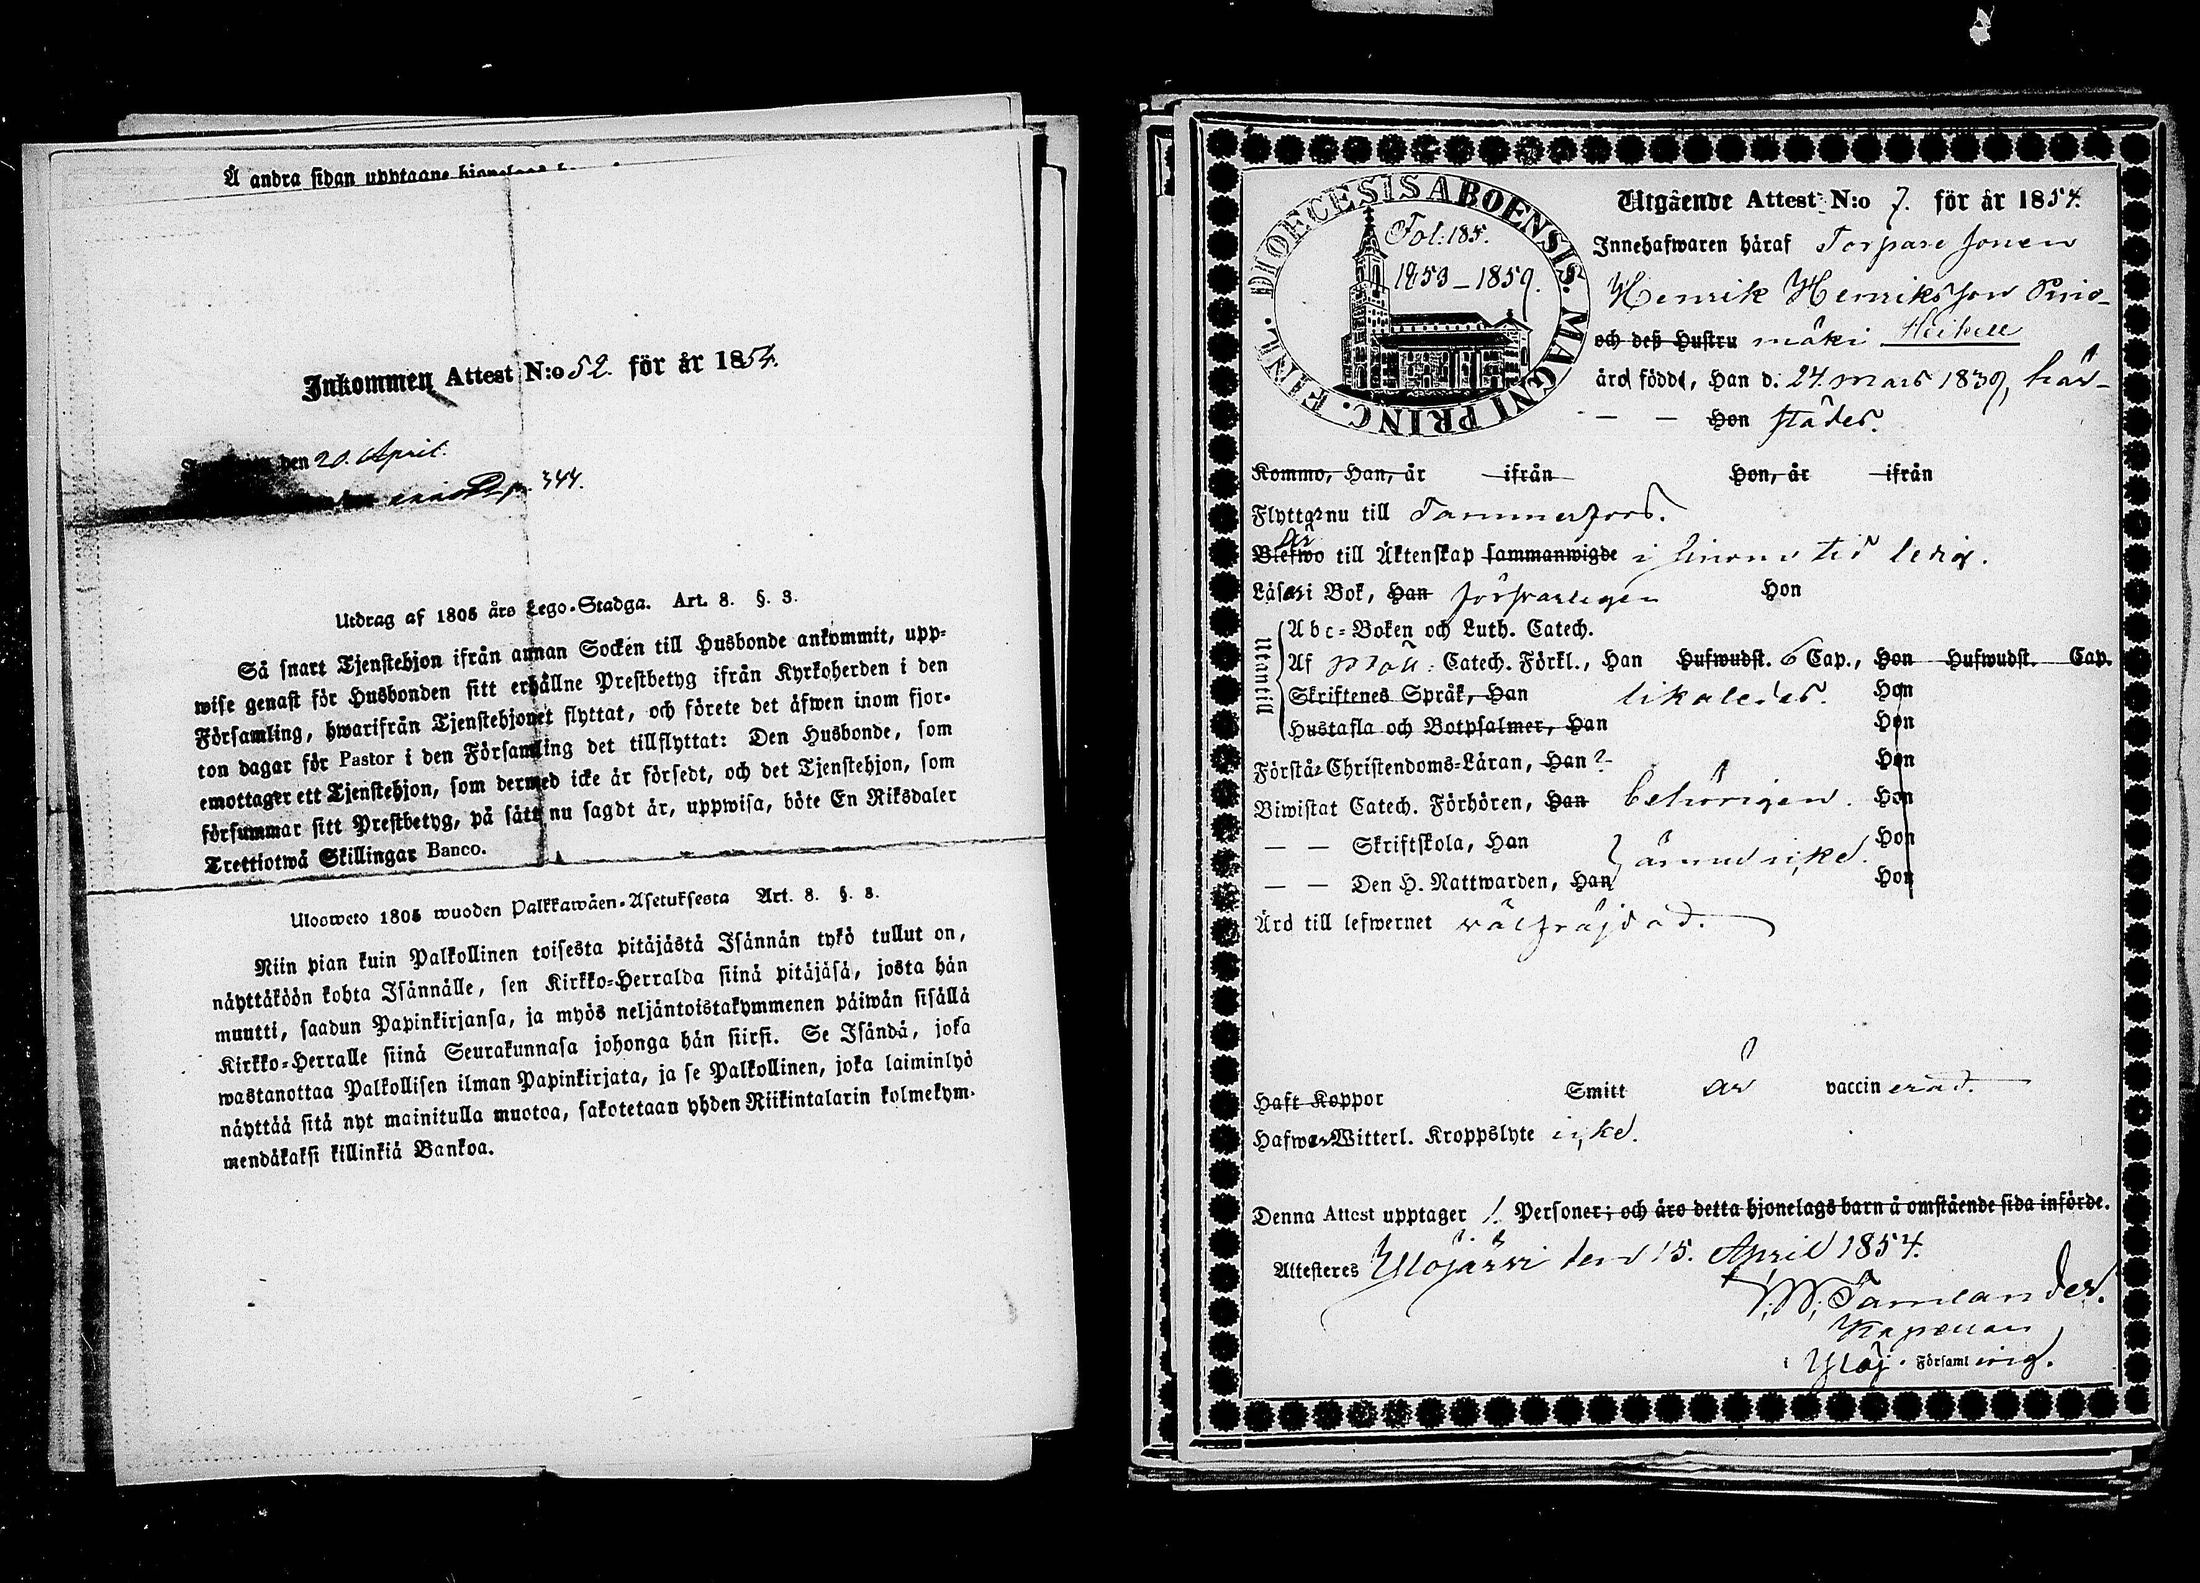 Å andra sidan upptagne
Inkommen Attest N:o 52. för år 1854.
den 20. April.
344.
Utdrag af 1805 års Lego-Stadga. Art. 8. §. 3.
Så snart Tjenstehjon ifrån annan Socken till Husbonde ankommit, upp-
wise genast för Husbonden sitt erhållne Prestbetyg ifrån Kyrkoherden i den
Församling, hwarifrån Tjenstehjonet flyttat, och förete det äfwen inom fjor-
ton dagar för Pastor i den Församling det tillflyttat: Den Husbonde, som
emottager ett Tjenstehjon, som dermed icke är försedt, och det Tjenstehjon, som
försummar sitt Prestbetyg, på sätt nu sagdt är, uppwisa, böte En Riksdaler
Trettiotwå Skillingar Banco.
Ulosweto 1805 wuoden Palkkawäen-Asetuksesta Art. 8. §. 3.
Niin pian kuin Palkollinen toisesta pitäjästä Isännän tykö tullut on,
näyttäköön kohta Isännälle, sen Kirkko-Herralda siinä pitäjäsä, josta hän
muutti, saadun Papinkirjansa, ja myös neljäntoistakymmenen päiwän sisällä
Kirkko-Herralle siinä Seurakunnasa johonga hän siirsi. Se Isändä, joka
wastanottaa Palkollisen ilman Papinkirjata, ja se Palkollinen, joka laiminlyö
näyttää sitä nyt mainitulla muotoa, sakotetaan yhden Riikintalarin kolmekym-
mendäkaksi killinkiä Bankoa.
DIOECESIS ABOENSIS. MAGNI PRINC. FINL.
Fol: 185.
1853-1859.
Utgående Attest N:o 7. för år 1854.
Innehafwaren häraf Torpare sonen
Henrik Henriksson Pirio-
och deß Hustru mäki Heikell
äro födde, Han d. 24. Mars 1839, här-
— — Hon städes.
Kommo, Han, år ifrån Hon, år ifrån
Flyttar nu till Tammerfors.
Blefwo Är till Äktenskap sammanwigde i sinom tid ledig.
Läser i Bok, Han försvarligen Hon
Utantill
Abc-Boken och Luth. Catech.
Af Möll: Catech. Förkl., Han Hufwudst. 6 Cap., Hon Hufwudst. Cap.
Skriftenes Språk, Han likaledes. Hon
Hustafla och Botpsalmer, Han Hon
Förstår Christendoms-Läran, Han Hon
Biwistat Catech. Förhören, Han behörigen. Hon
— — Skriftskola, Han ännu icke. Hon
— — Den H. Nattwarden, Han Hon
Ärd till lefwernet välfräjdad.
Haft Koppor Smitt är vaccinerad.
Hafwer Witterl. Kroppslyte icke.
Denna Attest upptager 1. Personer; och äro detta hjonelags barn å omstående sida införde.
Attesteres Ylöjärvi den 15. April 1854.
Tamlander.
Kapellan
i Ylöj. Församling.